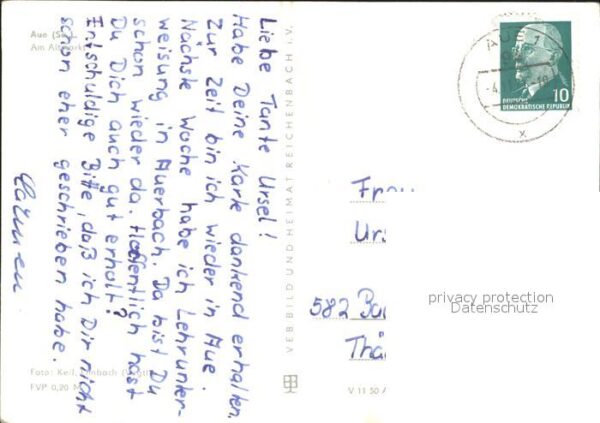 Aue (Sa.)
Am Altmarkt
Liebe Tante Ursel!
Habe Deine Karte dankend erhalten.
Zur Zeit bin ich wieder in Aue.
Nächste Woche habe ich Lehrunter-
weisung in Auerbach. Da bist Du
schon wieder da. Hoffentlich hast
Du Dich auch gut erholt?
Entschuldige Bitte, daß ich Dir nicht
schon eher geschrieben habe.
Foto: Keil, Limbach
FVP 0,20 M
VEB BILD UND HEIMAT REICHENBACH i. V.
V 11 50
AUE 1
10
DEUTSCHE
DEMOKRATISCHE REPUBLIK
x
Frau
Urs
582 Ba
Thü
privacy protection
Datenschutz